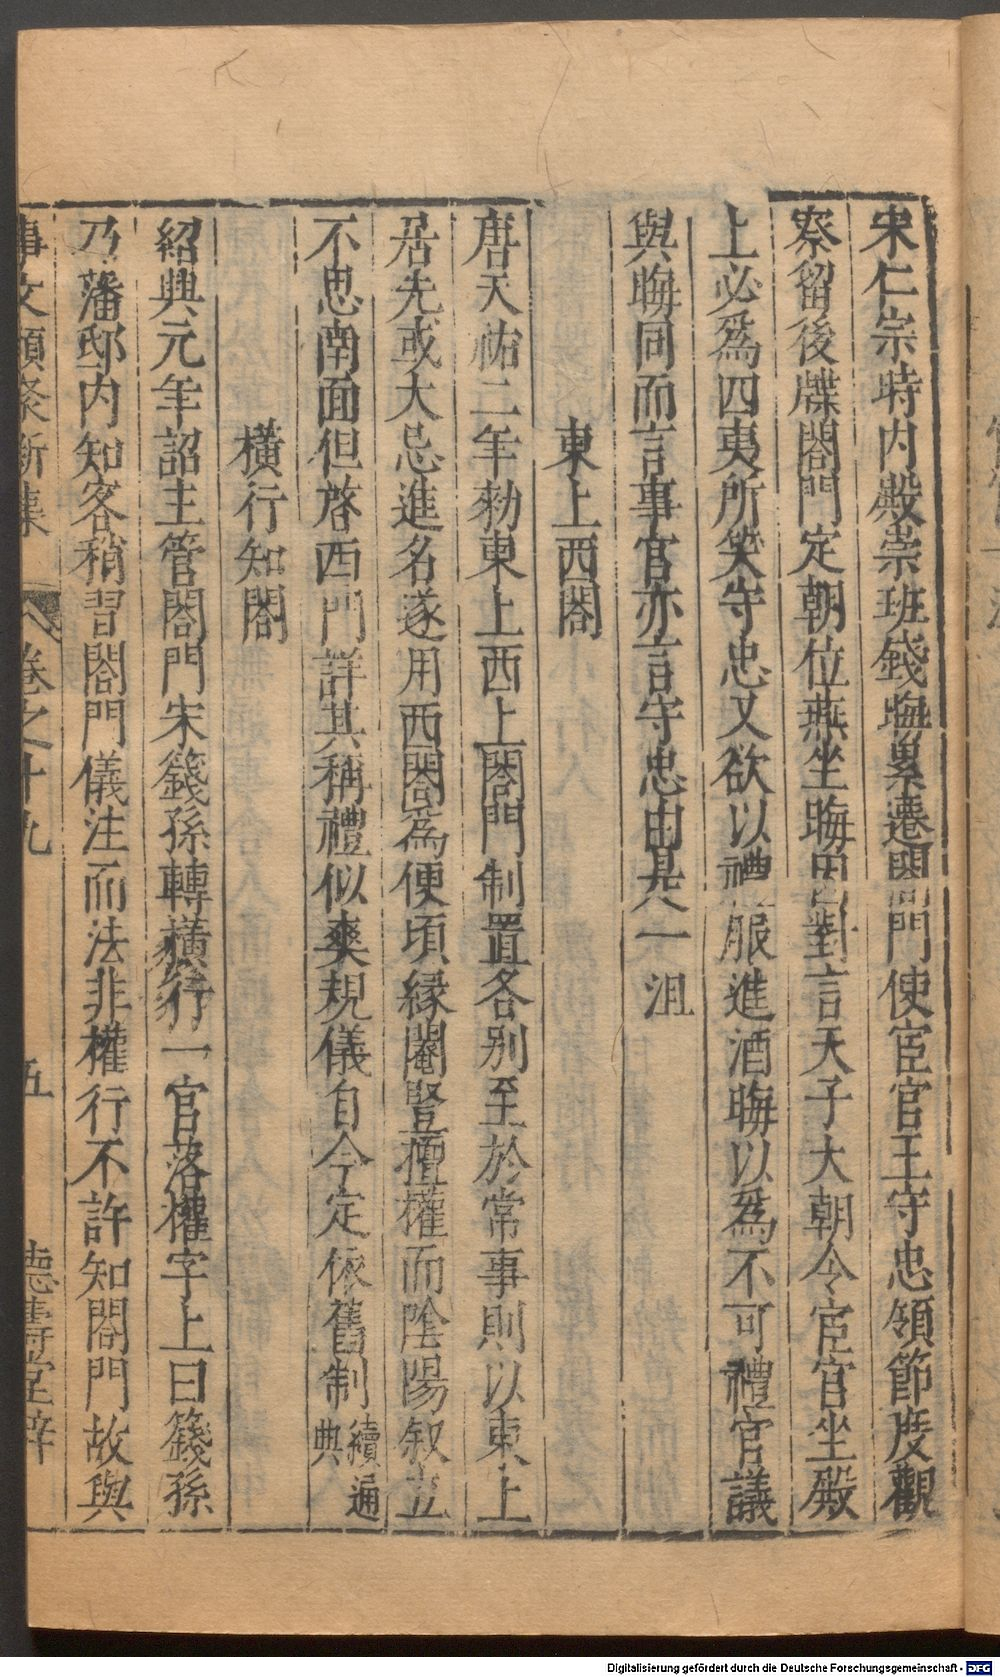 宋仁宗時内殿崇班錢晦累遷閤門使宦官王守忠領節度觀
察留後牒閤門定朝位燕坐晦因對言天子大朝令宦官坐殿
上必爲四夷所笑守忠又欲以禮服進酒晦以爲不可禮官議
與晦同而言事官亦言守忠由是一沮
東上西閤
唐天祐二年勑東上西上閤門制置各別至於常事則以東上
居先或大忌進名遂用西閤爲便頃緣閹豎擅權而陰陽叙立
不思南面但啓西門詳其稱禮似爽規儀自今定依舊制續通典
橫行知閤
紹興元年詔主管閤門宋籛孫轉橫行一官落權字上曰籛孫
乃藩邸内知客稍習閤門儀注而法非權行不許知閤門故與
事文類聚新集 卷之十九 五 德壽堂梓
Digitalisierung gefördert durch die Deutsche Forschungsgemeinschaft - DFG